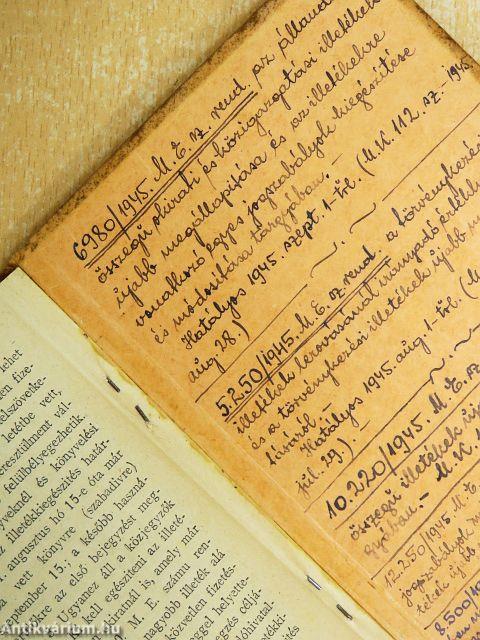 6980/1945. M. E. sz. rend. az államd
összegű okirati és közigazgatási illetékek
újabb megállapítása és az illetékekre
vonatkozó egyes jogszabályok kiegészítése
és módosítása tárgyában. –
Hatályos 1945. szept. 1-től. (M.K. 112. sz. – 1945.
aug. 28.)
5.250/1945. M. E. sz. rend. a törvénykezési
illetékek lerovásánál irányadó értékh
és a törvénykezési illetékek újabb m
Hatályos 1945. aug 1-től. (
júl. 29.). –
10.220/1945. M. E. sz.
összegű illetékek új
gyában. – M. K.
12.250/1945. M. E.
jogszabályok m
tékek újabb
8.500/1945
lehet
en fize-
elszövetke-
letékbe vett,
eresztülment vál-
felülbélyegezhetik.
yveknél és könyvelési
z illetékkiegészítés határ-
. augusztus hó 15-e óta már
vett könyvre (szabadívre)
vre az első bejegyzést meg
tember 15. a később haszná-
Ugyanez áll a közjegyzők
kell egészíteni az illeté-
iratnál is, amely már
M. E. számú ren-
nagyobb illeték alá
közvetlen fizetés-
eggel helyette-
gés célja-
óhivatal-
Antikvárium.hu